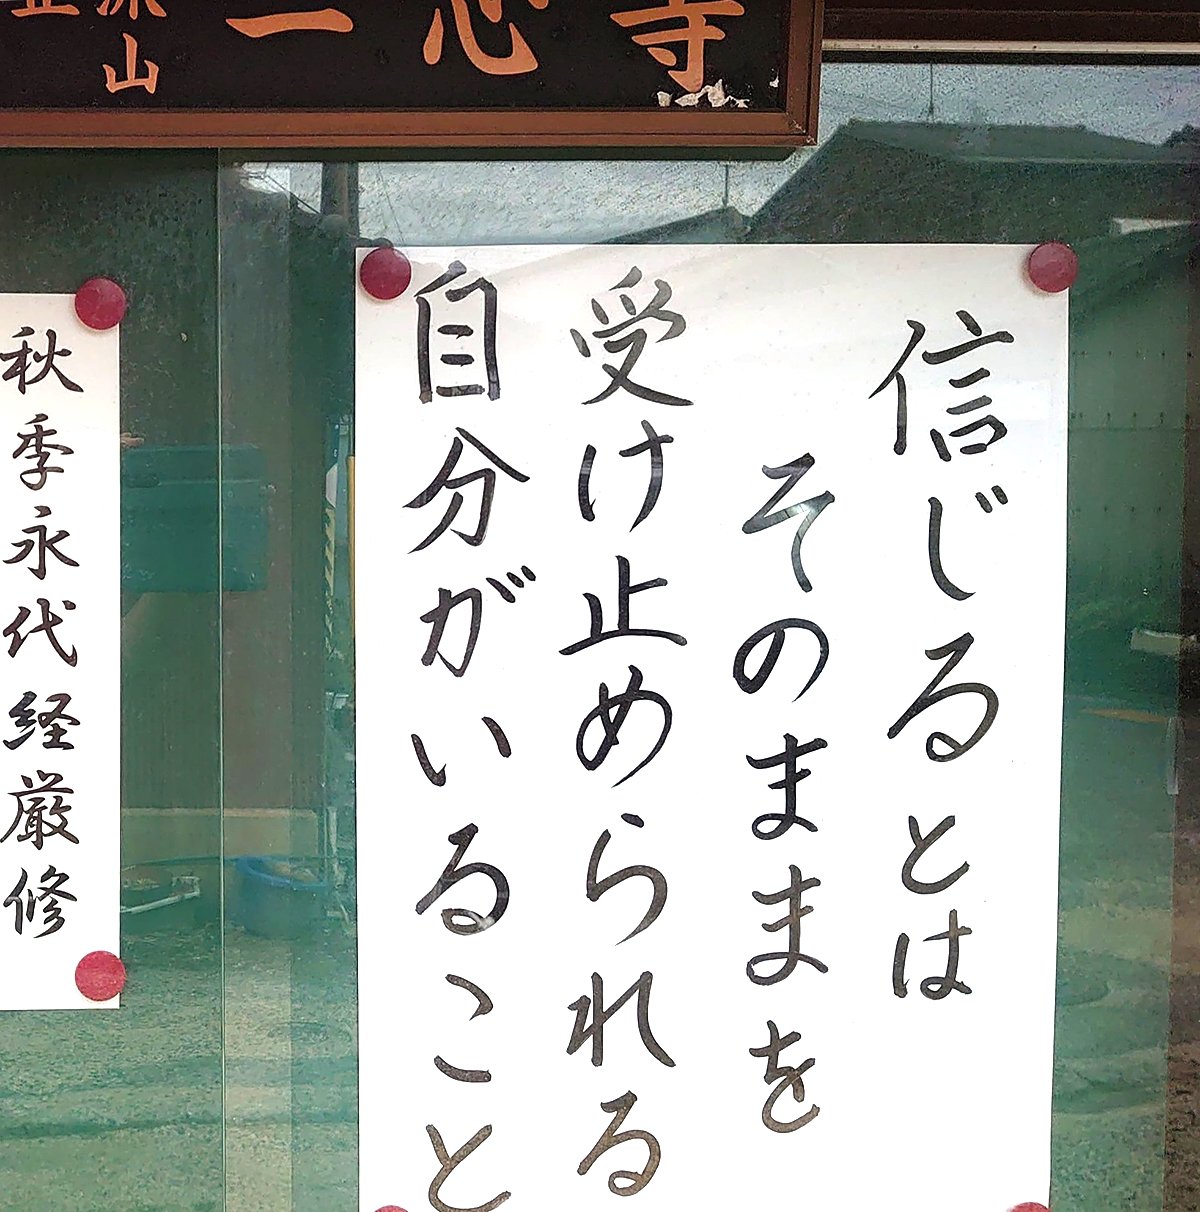 山
一心寺
信じるとは
そのままを
受け止められる
自分がいること
秋季永代経厳修